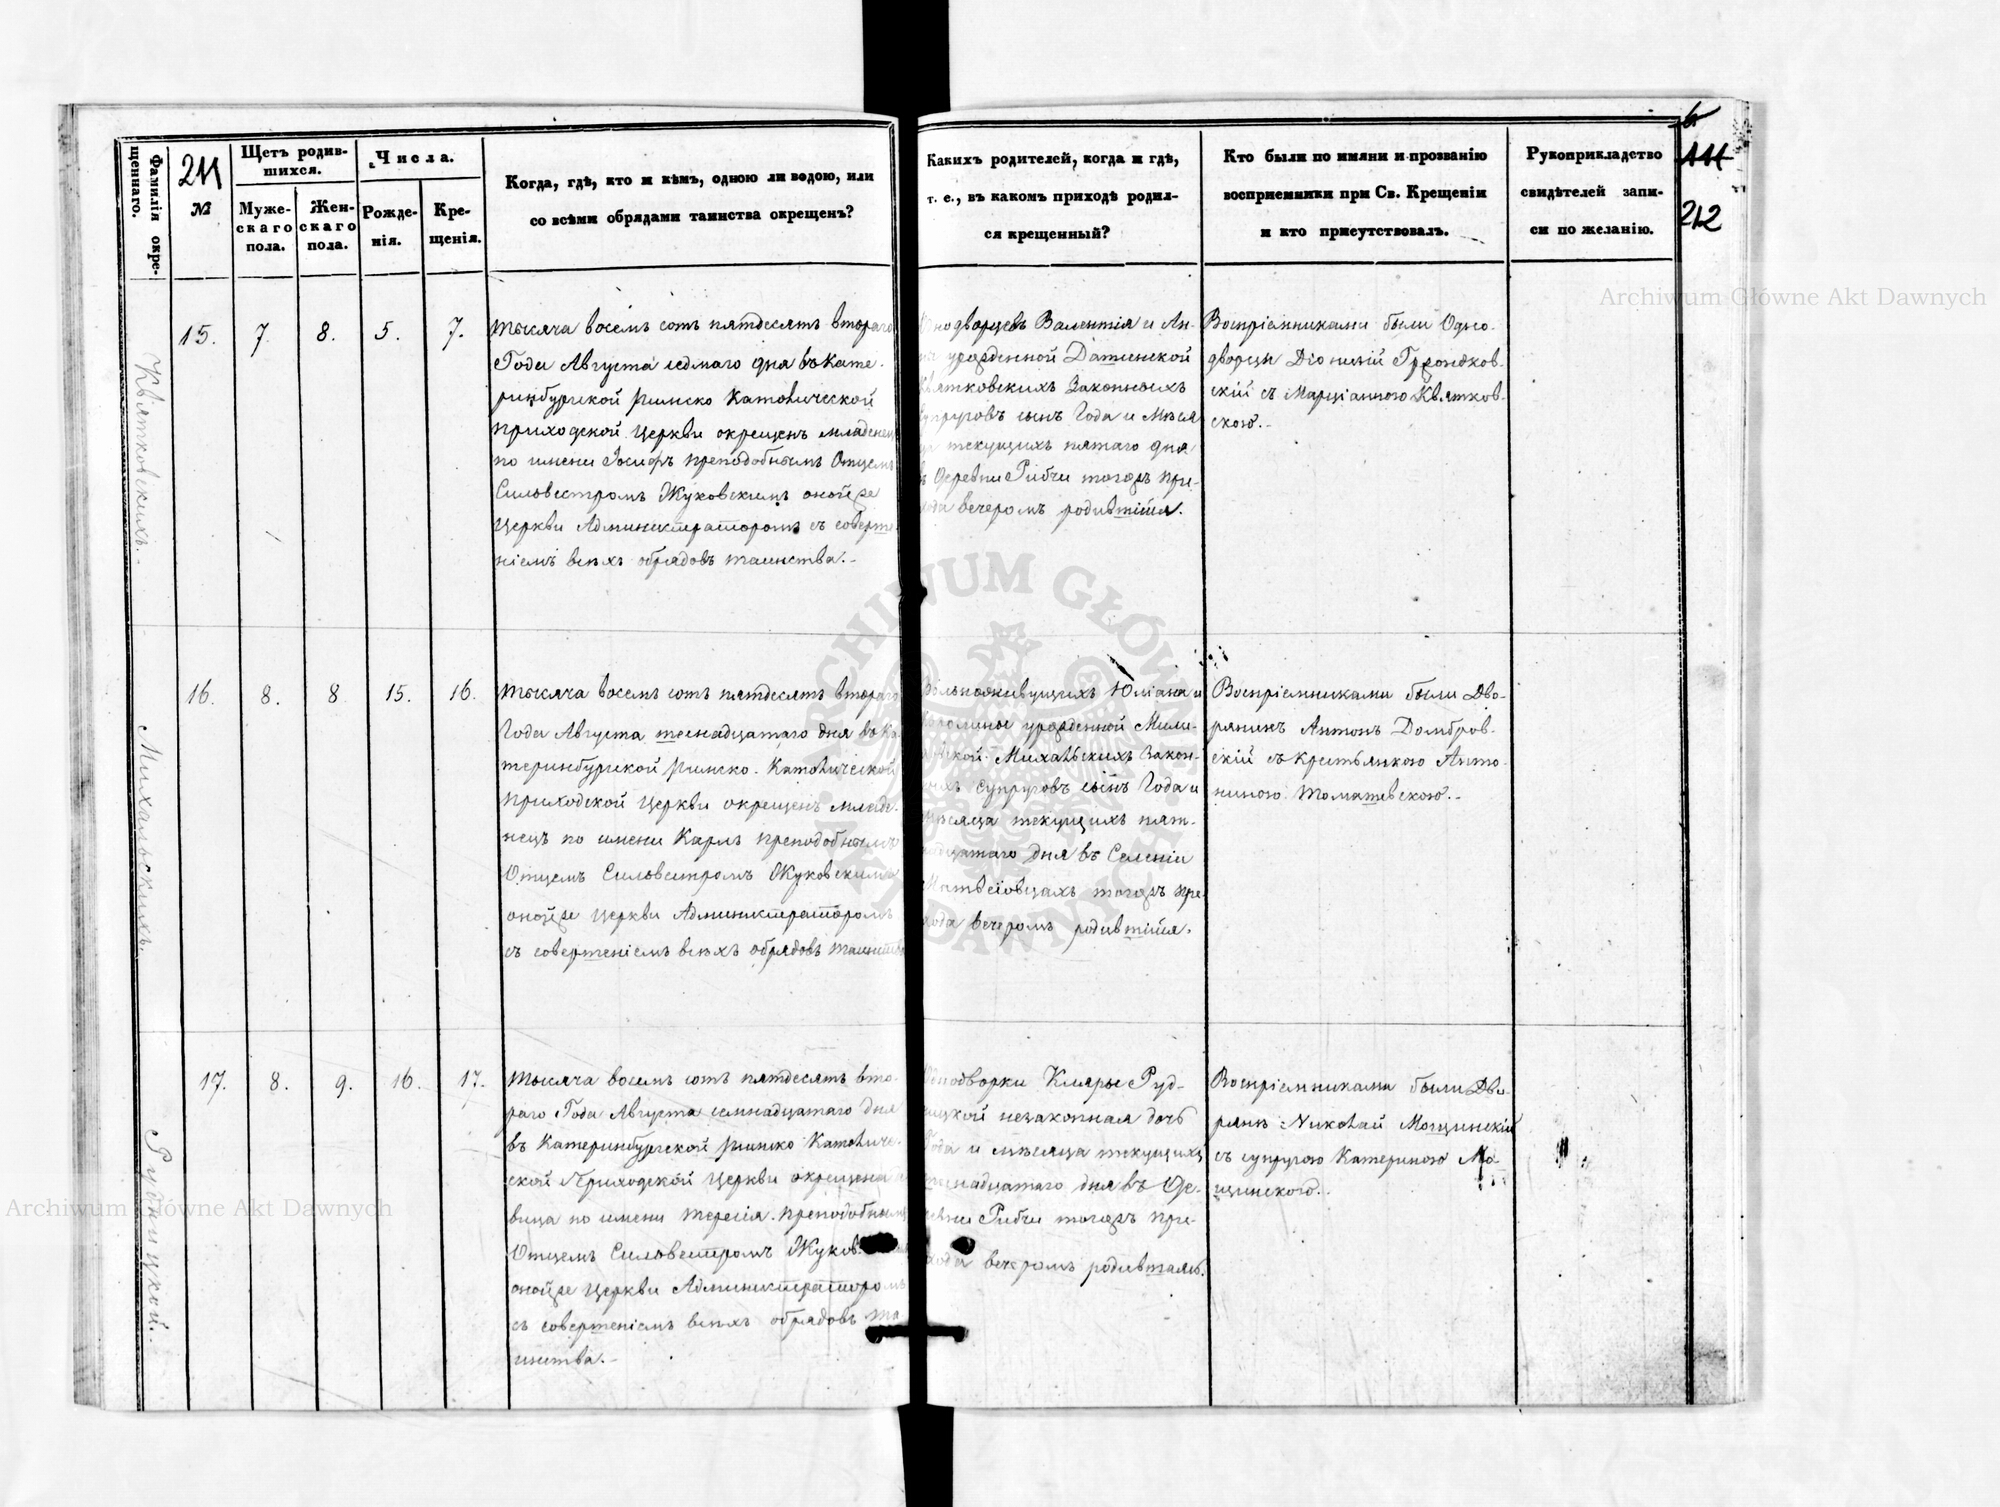 Фамилія окре-
щеннаго.
211
№
Щетъ родив-
шихся.
Муже-
скаго
пола.
Жен-
скаго
пола.
Числа.
Рожде-
нія.
Кре-
щенія.
Когда, гдѣ, кто и кѣмъ, одною ли водою, или
со всѣми обрядами таинства окрещенъ?
Какихъ родителей, когда и гдѣ,
т. е., въ какомъ приходѣ родил-
ся крещенный?
Кто были по имяни и прозванію
воспріемники при Св. Крещеніи
и кто присутствовалъ.
Рукоприкладство
свидѣтелей запи-
си по желанію.
212
Квятковскихъ.
15.
7.
8.
5.
7.
Тысяча восемь сотъ пятдесятъ втораго
Года Августа седмаго дня въ Кате-
ринбургской Римско Католической
приходской Церкви окрещенъ младенец
по имени Іосифъ преподобнымъ Отцемъ
Сильвестромъ Жуковскимъ онойже
Церкви Администраторомъ съ соверше
ніемъ всѣхъ обрядовъ таинства.-
нодворцевъ Валентія и Ан-
урожденной
Квятковскихъ Законныхъ
супруговъ сынъ Года и Мѣся
текущихъ пятаго дня
въ деревни Рибчи тогожъ при-
хода вечеромъ родившійся.
Воспріемниками были Одно-
дворцы Діонизій
скій съ Марціанною Квятков-
скою.-
Михальскихъ.
16.
8.
8
15.
16.
Тысяча восемь сотъ пятдесятъ втораго
Года Августа шеснадцатаго дня въ Ка
теринбургской Римско-Католической
приходской Церкви окрещенъ младе-
нецъ по имени Карлъ преподобнымъ
Отцемъ Сильвестромъ Жуковскимъ
онойже Церкви Администраторомъ
съ совершеніемъ всѣхъ обрядовъ таинства
Вольноживущихъ Юліана и
Каролины урожденной Мили-
ской Михальскихъ Закон-
ныхъ супруговъ сынъ Года и
мѣсяца текущихъ пят-
надцатаго дня въ Селеніи
тогожъ при-
хода вечеромъ родившійся.
Воспріемниками были Дво-
рянинъ Антонъ Домбров-
скій съ Крестьянкою Анто-
ниною Томашевскою.-
Рудницкой.
17.
8.
9.
16.
17.
Тысяча восемь сотъ пятдесятъ вто-
раго Года Августа семнадцатаго дня
въ Катеринбургской Римско Католиче-
ской Приходской Церкви окрещена
вица по имени Тересія преподобнымъ
Отцемъ Сильвестромъ Жуков
онойже Церкви Администраторомъ
съ совершеніемъ всѣхъ обрядовъ та
инства.-
Однодворки Кляры Руд-
ницкой незаконная дочь
Года и мѣсяца текущихъ
шеснадцатаго дня въ Де-
ревни Рибчи тогожъ при-
хода вечеромъ родившаясь.
Воспріемниками были Дво-
рянъ Николай Мощинскій
съ супругою Катериною Мо
щинскою.-
Archiwum Główne Akt Dawnych
Archiwum Główne Akt Dawnych
ARCHIWUM GŁÓWNE
AKT DAWNYCH